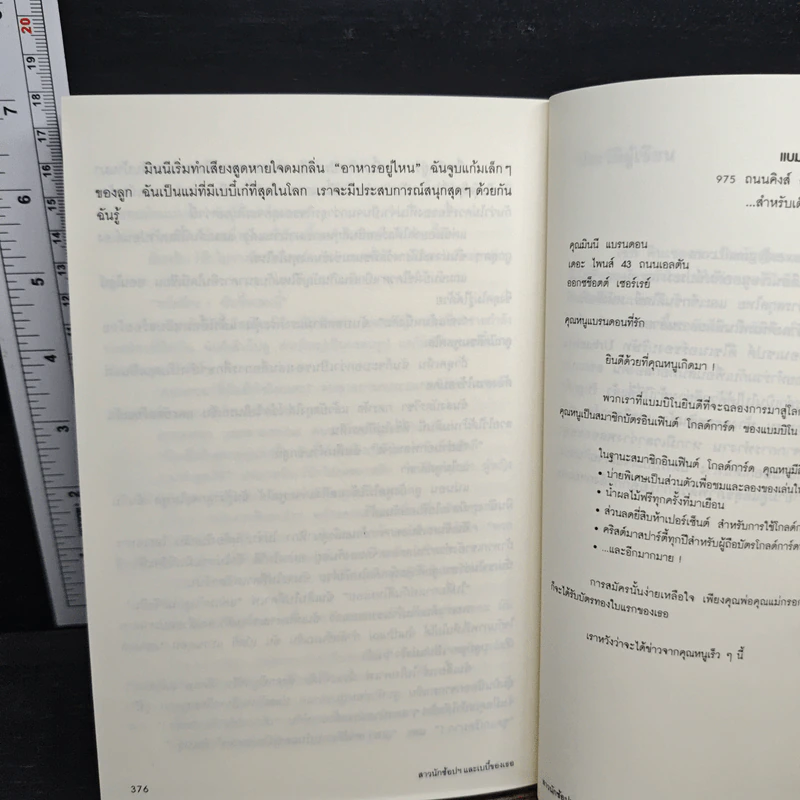 มินนีเริ่มทำเสียงสูดหายใจดมกลิ่น “อาหารอยู่ไหน” ฉันจูบแก้มเล็กๆ
ของลูก ฉันเป็นแม่ที่มีเบบี้เก๋ที่สุดในโลก เราจะมีประสบการณ์สนุกสุดๆ ด้วยกัน
ฉันรู้
สาวนักช้อปฯ และเบบี้ของเธอ
376
แบม
975 ถนนคิงส์
...สำหรับเด็
คุณมินนี แบรนดอน
เดอะ ไพนส์ 43 ถนนเอลตัน
ออกซช็อตต์ เซอร์เรย์
คุณหนูแบรนดอนที่รัก
ยินดีด้วยที่คุณหนูเกิดมา !
พวกเราที่แบมบิโนยินดีที่จะฉลองการมาสู่โล
คุณหนูเป็นสมาชิกบัตรอินเฟ้นต์ โกลด์การ์ด ของแบมบิโน
ในฐานะสมาชิกอินเฟ้นต์ โกลด์การ์ด คุณหนูมี
• บ่ายพิเศษเป็นส่วนตัวเพื่อชมและลองของเล่นใ
• น้ำผลไม้ฟรีทุกครั้งที่มาเยือน
• ส่วนลดยี่สิบห้าเปอร์เซ็นต์ สำหรับการใช้โกลด์
• คริสต์มาสปาร์ตี้ทุกปีสำหรับผู้ถือบัตรโกลด์การ์ด
• ...และอีกมากมาย !
การสมัครนั้นง่ายเหลือใจ เพียงคุณพ่อคุณแม่กรอก
ก็จะได้รับบัตรทองใบแรกของเธอ
เราหวังว่าจะได้ข่าวจากคุณหนูเร็ว ๆ นี้
สาวนักช้อปฯ
7
6
5
4
3
20
19
18
17
16
15
14
13
12
11
10
9
8